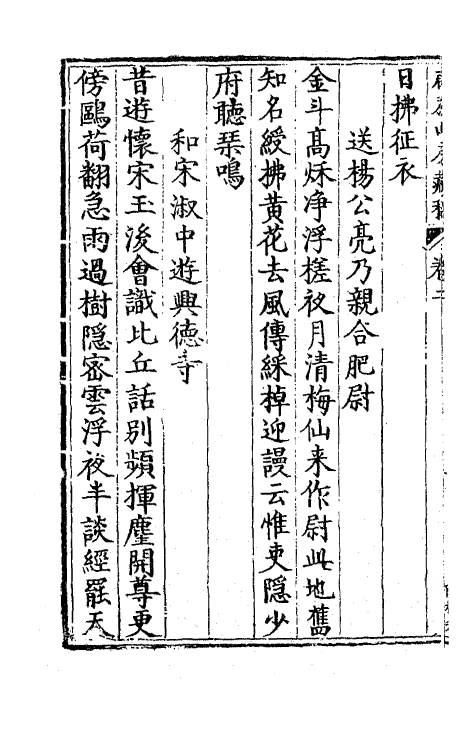 卷二
日拂征衣
送楊公亮乃親合肥尉
金斗髙秌净浮槎夜月清梅仙来作尉此地舊
知名綬拂黄花去風傳綵棹迎謾云惟吏隠少
府聴琹鳴
和宋淑中遊興德寺
昔遊懐宋玉後會識比丘話别頻揮麈開尊更
傍鷗荷翻急雨過樹隠密雲浮夜半談經罷天